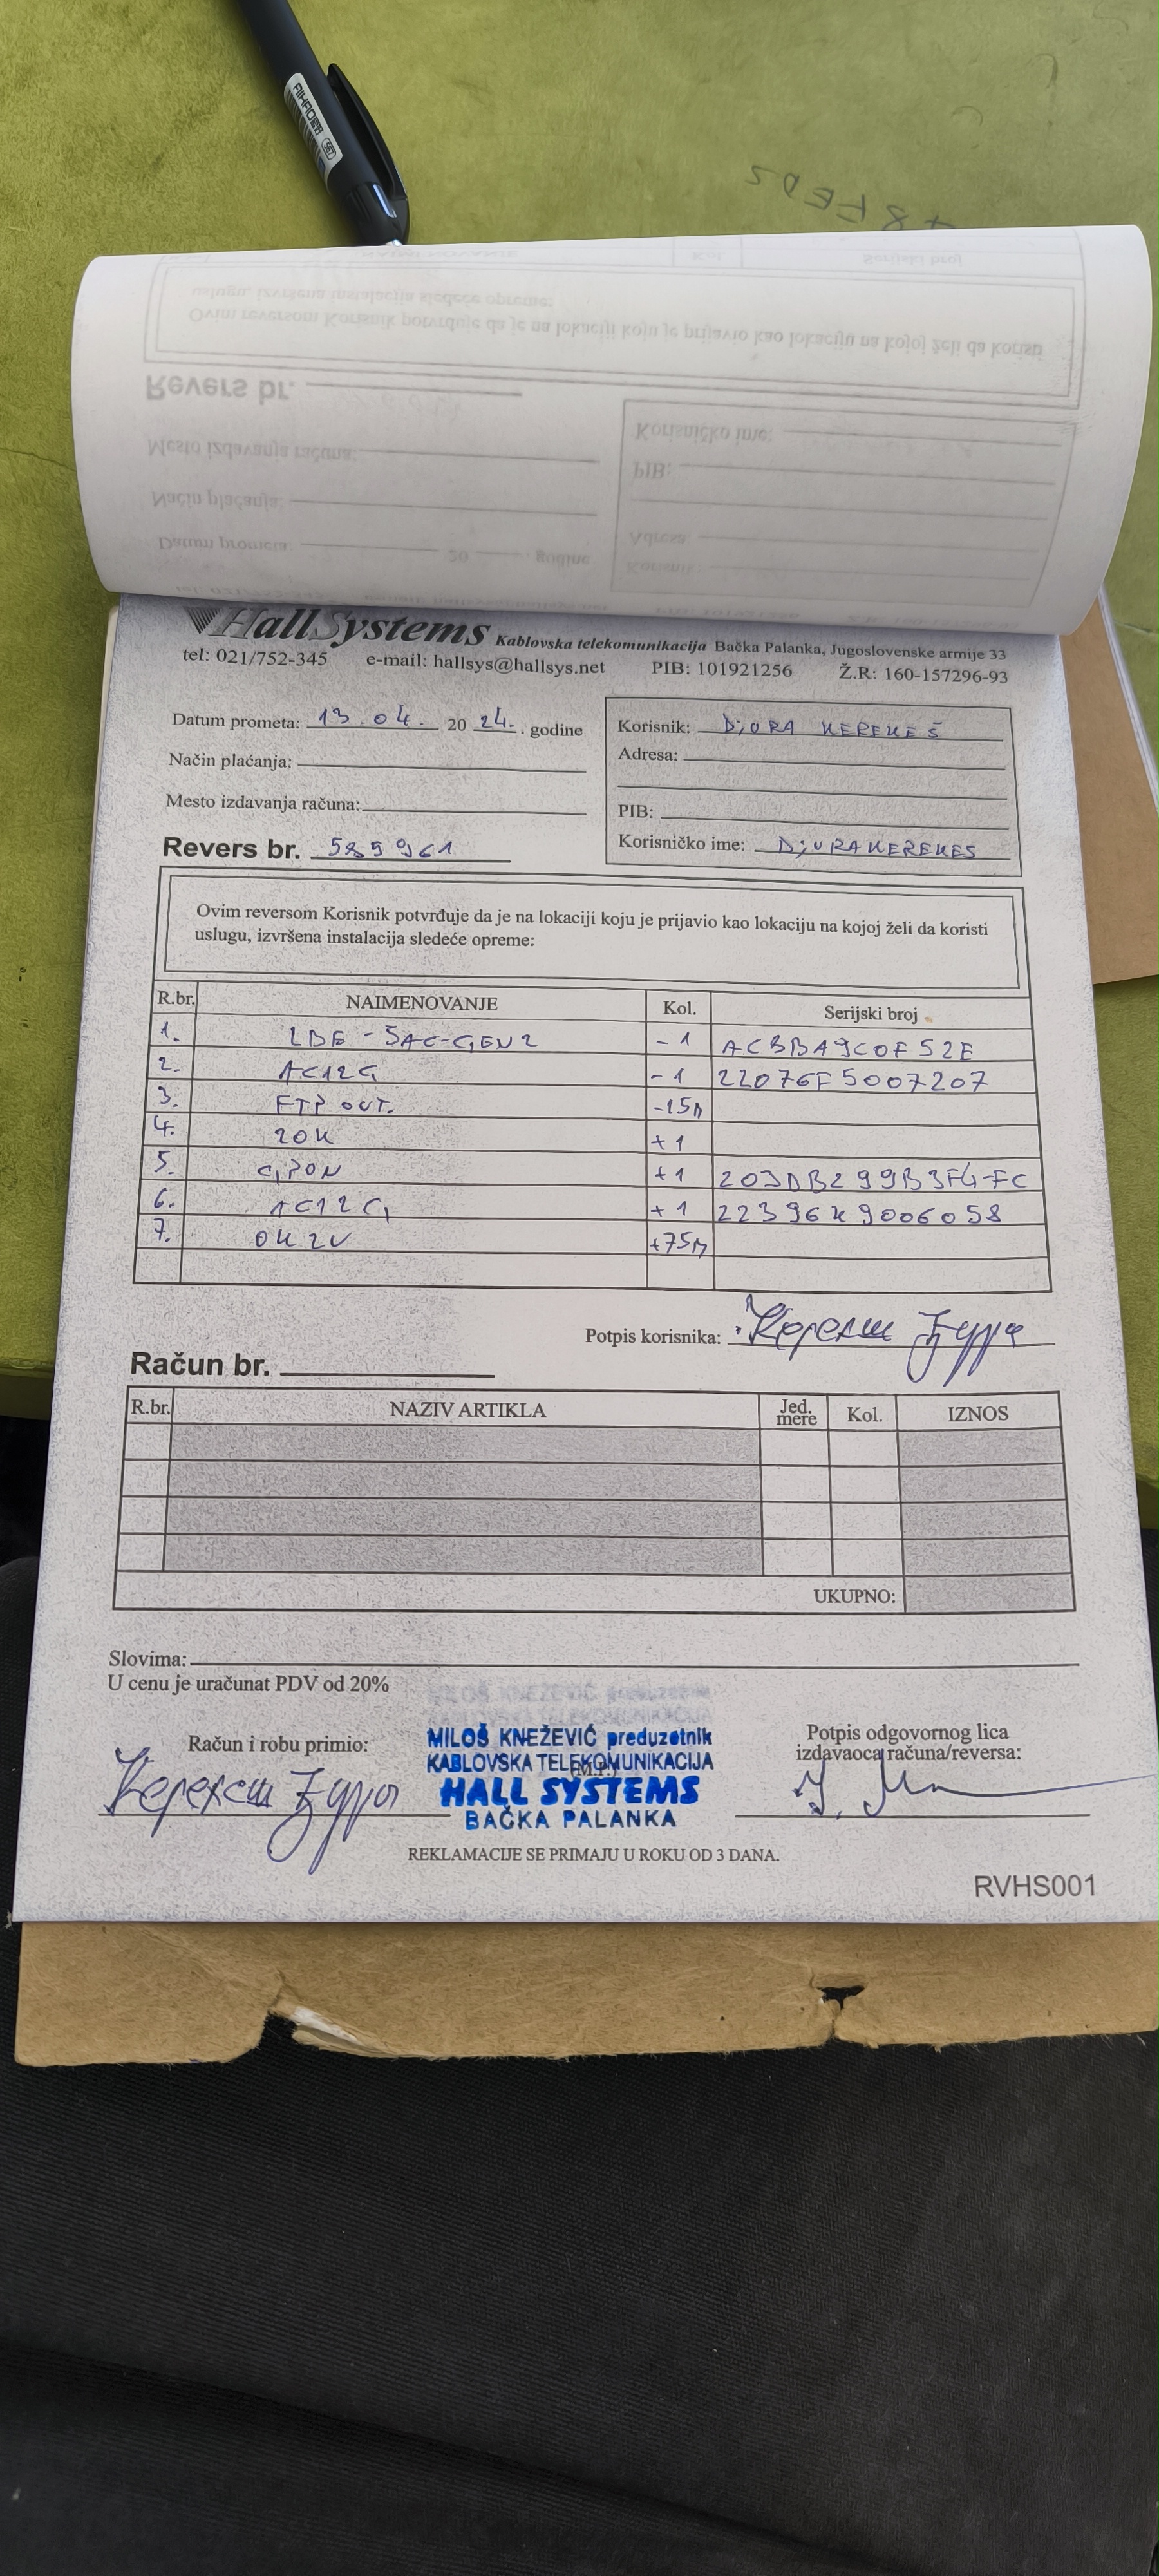 HallSystems Kablovska telekomunikacija Bačka Palanka, Jugoslovenske armije 33
tel: 021/752-345 e-mail: hallsys@hallsys.net PIB: 101921256 Ž.R: 160-157296-93
Datum prometa: 13.04. 20 24. . godine
Način plaćanja:
Mesto izdavanja računa:
Revers br. 585961
Korisnik: DJURA KEREKEŠ
Adresa:
PIB:
Korisničko ime: DJURAKEREKES
Ovim reversom Korisnik potvrđuje da je na lokaciji koju je prijavio kao lokaciju na kojoj želi da koristi
uslugu, izvršena instalacija sledeće opreme:
R.br. NAIMENOVANJE Kol. Serijski broj
1. LBE-5AC-GEN2 -1 AC8BA9C0F52E
2. AC12G -1 22076F5007207
3. FTP OUT. -15m
4. 20K +1
5. GPON +1 203DB299B3F4-FC
6. AC12G +1 22396K9006058
7. OK2V +75m
Potpis korisnika: Керекеш Ђура
Račun br.
R.br. NAZIV ARTIKLA Jed. mere Kol. IZNOS
UKUPNO:
Slovima:
U cenu je uračunat PDV od 20%
Račun i robu primio:
Керекеш Ђура
MILOŠ KNEŽEVIĆ preduzetnik
KABLOVSKA TELEKOMUNIKACIJA
(M.P.)
HALL SYSTEMS
BAČKA PALANKA
Potpis odgovornog lica
izdavaoca računa/reversa:
REKLAMACIJE SE PRIMAJU U ROKU OD 3 DANA.
RVHS001